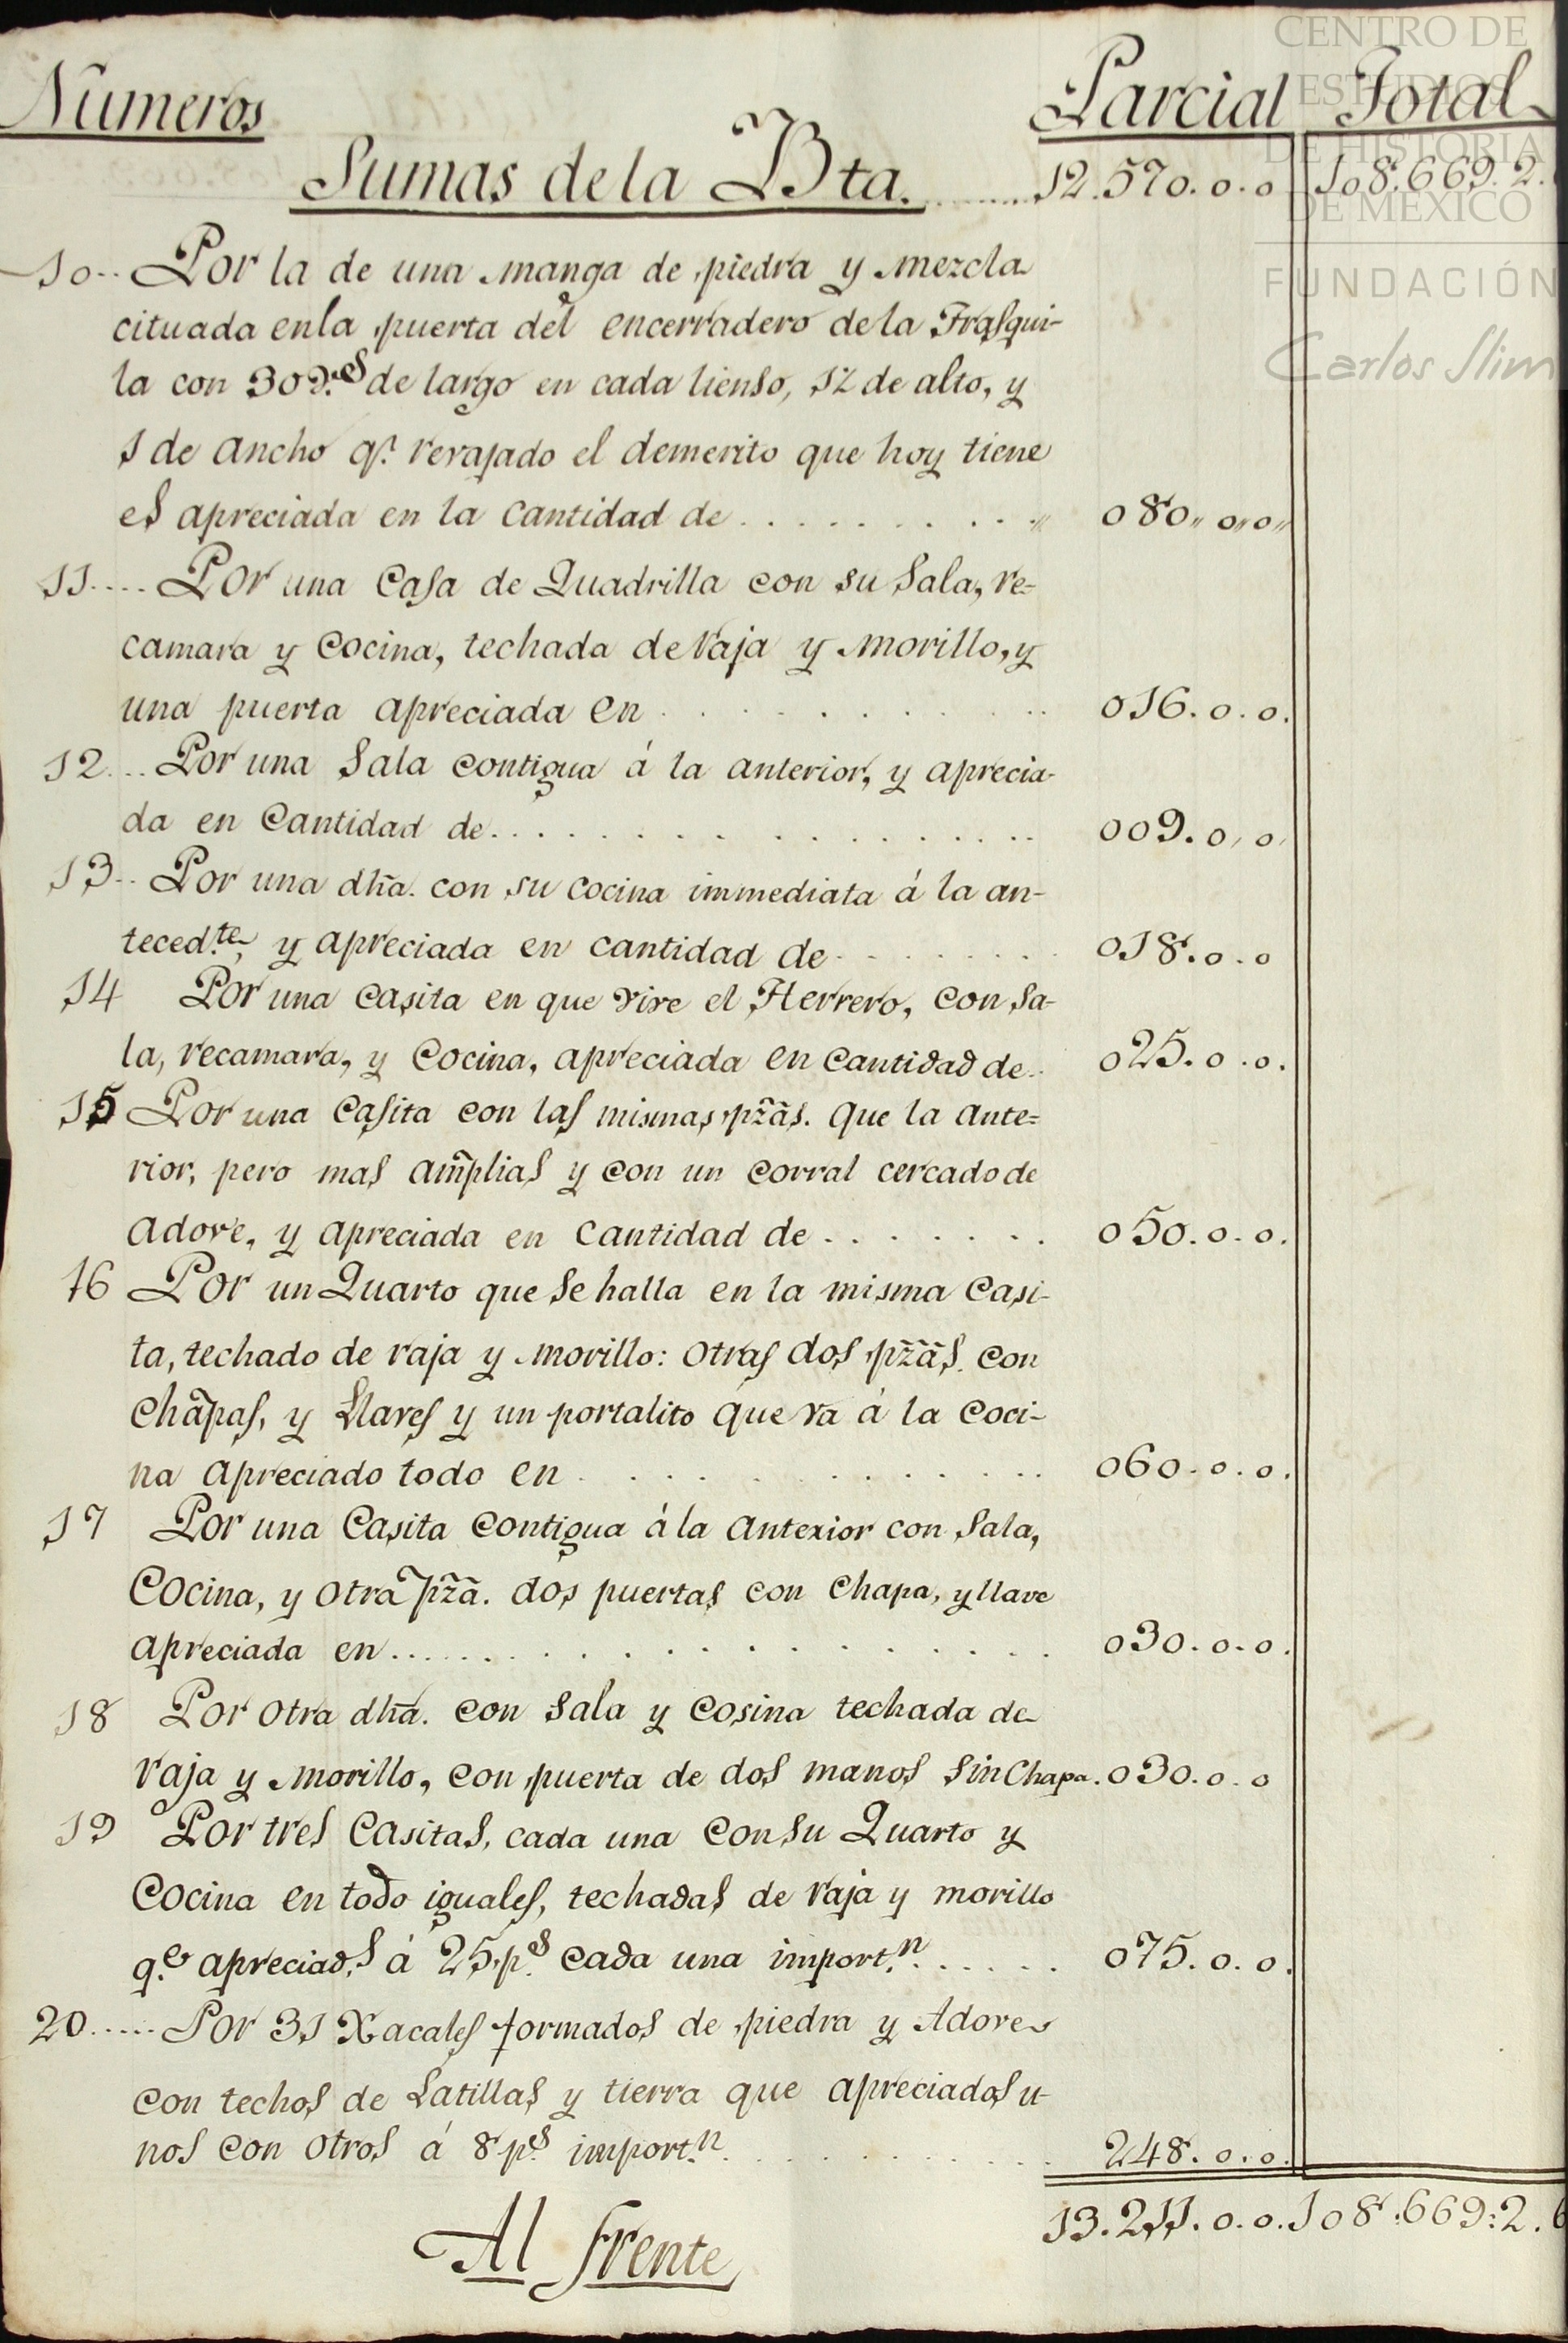 Números Parcial Total
Sumas de la Bta. 12.570.0.0 108.669.2.
10.. Por la de una manga de piedra y mezcla
cituada enla puerta del encerradero dela Trasqui-
la con 30 v.es de largo en cada lienso, 12 de alto, y
1 de ancho q.e revajado el demerito que hoy tiene
es apreciada en la cantidad de . . . . . . . . . . 080,,0,,0,,
11.... Por una Casa de Quadrilla con su Sala, re=
camara y Cocina, techada de raja y morillo, y
una puerta apreciada en . . . . . . . . . . 016.0.0.
12... Por una Sala contigua á la anterior, y aprecia-
da en Cantidad de . . . . . . . . . . 009.0,0,
13.. Por una dha. con su cocina immediata á la an-
teced.te, y apreciada en cantidad de . . . . . . . . 018.0.0
14 Por una casita en que vive el Herrero, con Sa-
la, recamara, y Cocina, apreciada en Cantidad de.. 025.0.0.
15 Por una Casita con las mismas pzãs. que la ante=
rior, pero mas am̃plias y con un corral cercado de
adove, y apreciada en Cantidad de . . . . . . . 050.0.0.
16 Por un Quarto que se halla en la misma Casi-
ta, techado de raja y morillo: otras dos pzãs. con
chapas, y Llaves y un portalito que va á la Coci-
na apreciado todo en . . . . . . . . . . 060.0.0.
17 Por una Casita Contigua á la Anterior con Sala,
Cocina, y otra pzã. dos puertas con Chapa, y llave
apreciada en . . . . . . . . . . 030.0.0.
18 Por otra dha. con Sala y Cosina techada de
raja y morillo, con puerta de dos manos sin Chapa. 030.0.0
19 Por tres Casitas, cada una con su Quarto y
Cocina en todo iguales, techadas de raja y morillo
q.e apreciad.s á 25 p.s cada una import.n . . . . . 075.0.0.
20..... Por 31 Xacales formados de piedra y Adove
con techos de Latillas y tierra que apreciados u-
nos con otros á 8 p.s import.n . . . . . . . . . . 248.0.0.
13.211.0.0. 108.669:2.6
Al frente
CENTRO DE
ESTUDIOS
DE HISTORIA
DE MÉXICO
FUNDACIÓN
Carlos Slim